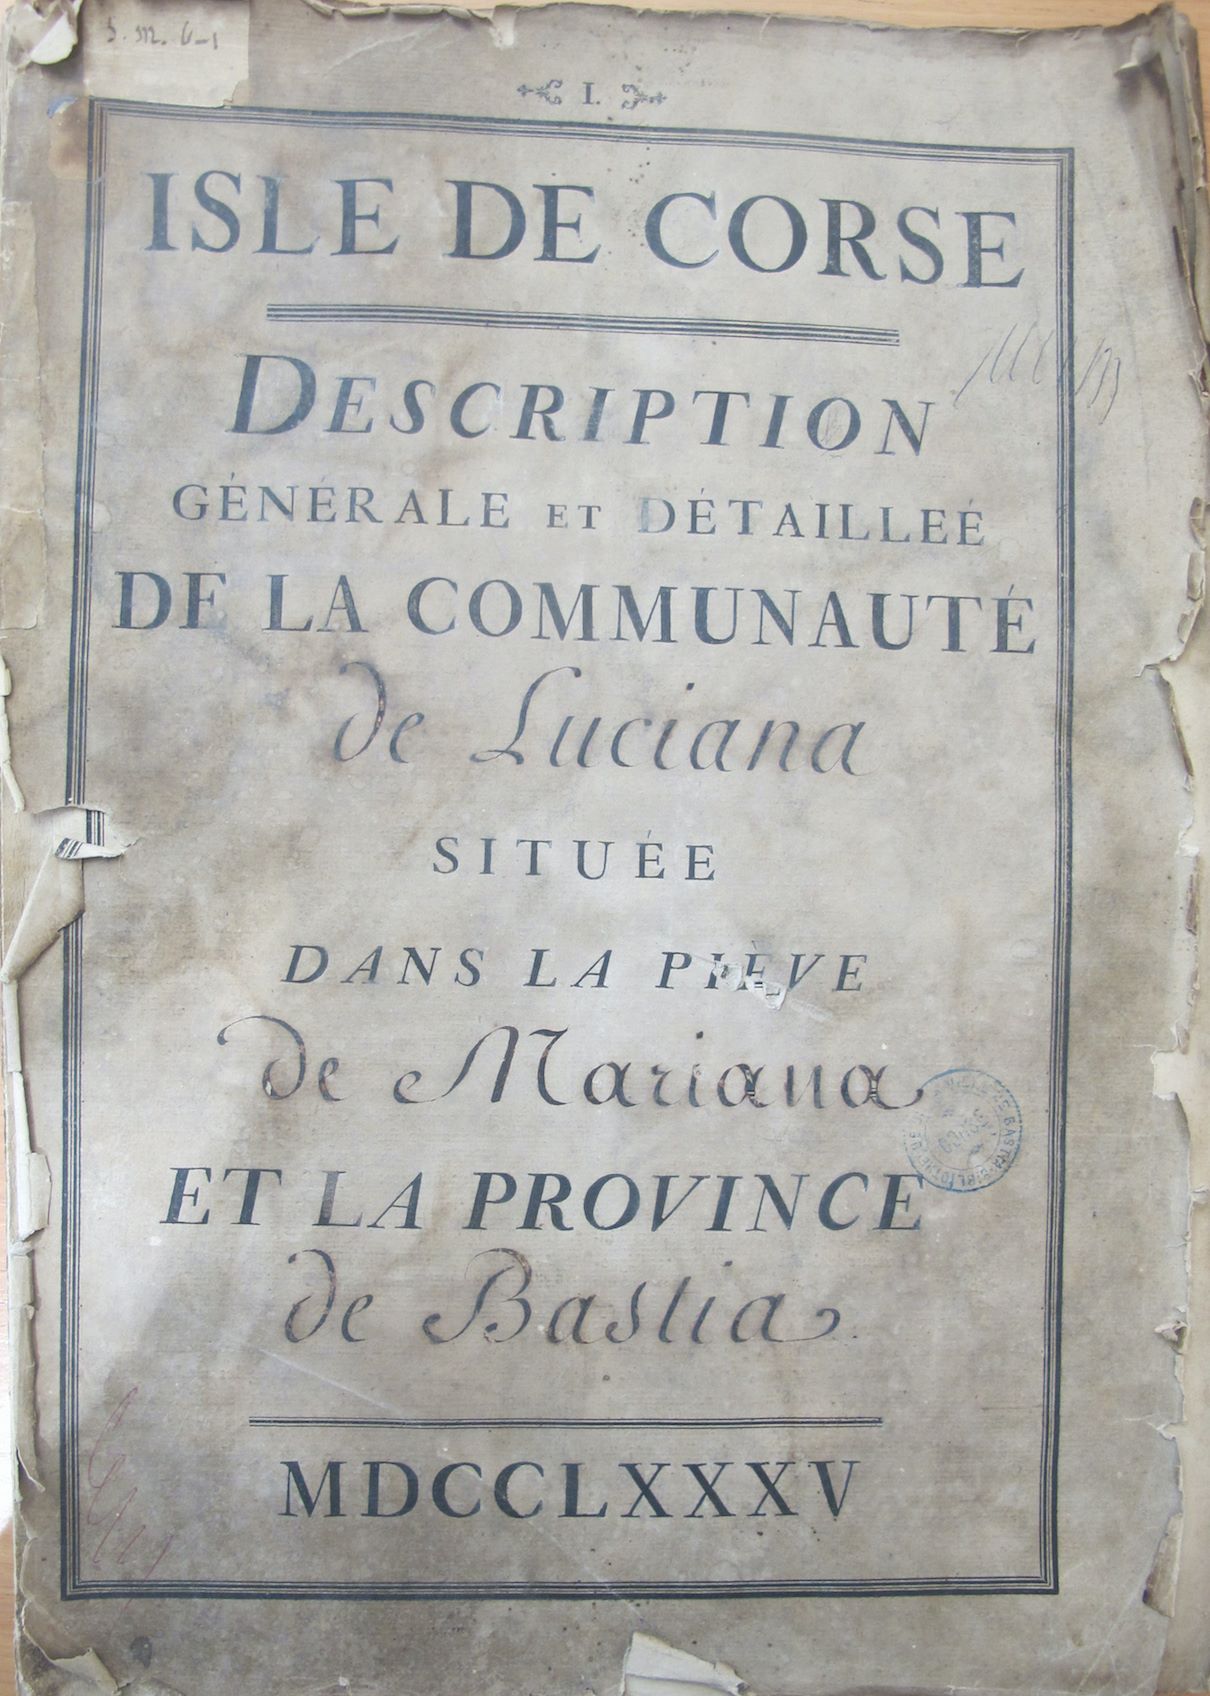 I.
ISLE DE CORSE
DESCRIPTION
GÉNÉRALE ET DÉTAILLEÉ
DE LA COMMUNAUTÉ
de Luciana
SITUÉE
DANS LA PIÈVE
de Mariana
ET LA PROVINCE
de Bastia
MDCCLXXXV